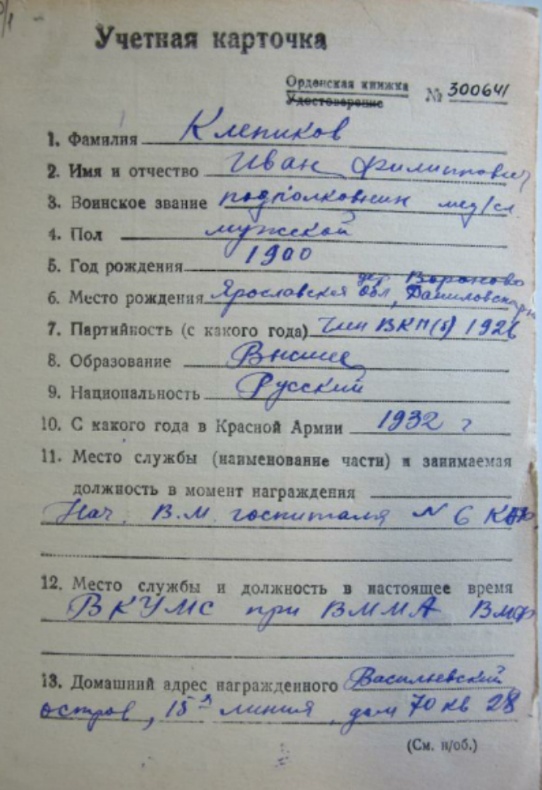 Учетная карточка
Орденская книжка
Удостоверение № 300641
1. Фамилия Клепиков
2. Имя и отчество Иван Филиппович
3. Воинское звание подполковник мед/сл.
4. Пол мужской
5. Год рождения 1900
дер. Вороново
6. Место рождения Ярославская обл, Даниловский
7. Партийность (с какого года) Член ВКП(б) 1926
8. Образование Высшее
9. Национальность Русский
10. С какого года в Красной Армии 1932 г
11. Место службы (наименование части) и занимаемая
должность в момент награждения
Нач. В.М. госпиталя N 6
12. Место службы и должность в настоящее время
ВКУМС при ВММА ВМФ
13. Домашний адрес награжденного Васильевский
остров, 15я линия, дом 70 кв 28
(См. н/об.)